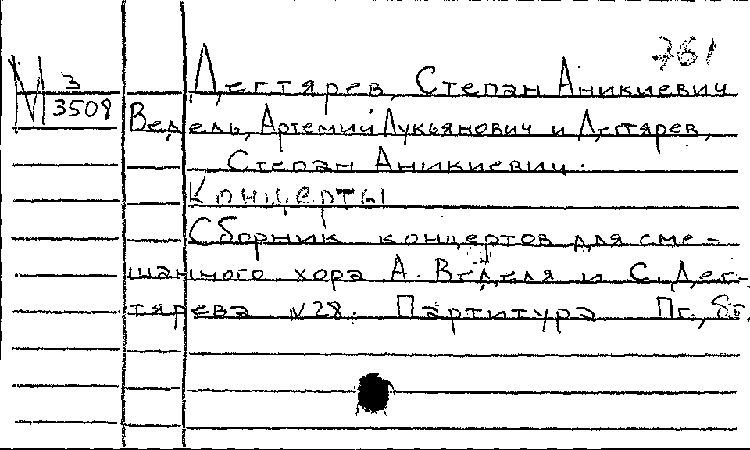 761
Дегтярев, Степан Аникиевич
М 3
3509
Ведель, Артемий Лукьянович и Дегтярев,
Степан Аникиевич.
Концерты
Сборник концертов для сме-
шанного хора А. Веделя и С. Дег-
тярева №28. Партитура Пг., бг.